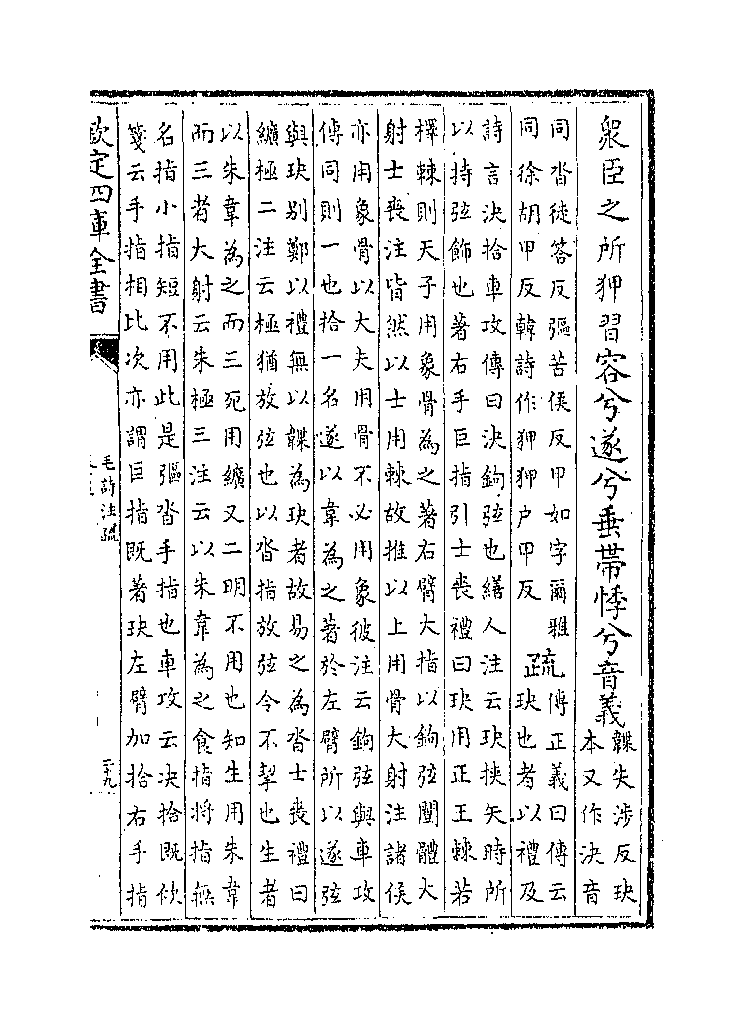 衆臣之所狎習容兮遂兮垂帶悸兮音義韘失涉反玦
本又作決音
同沓徒答反彄苦侯反甲如字爾雅
同徐胡甲反韓詩作狎狎户甲反
疏傳正義曰傳云
玦也者以禮及
詩言決拾車攻傳曰決鉤弦也繕人注云玦挾矢時所
以持弦飾也著右手巨指引士喪禮曰玦用正王棘若
檡棘則天子用象骨為之著右臂大指以鉤弦闓體大
射士喪注皆然以士用棘故推以上用骨大射注諸侯
亦用象骨以大夫用骨不必用象彼注云鉤弦與車攻
傳同則一也拾一名遂以韋為之著於左臂所以遂弦
與玦别鄭以禮無以韘為玦者故易之為沓士喪禮曰
纊極二注云極猶放弦也以沓指放弦令不挈也生者
以朱韋為之而三死用纊又二明不用也知生用朱韋
而三者大射云朱極三注云以朱韋為之食指將指無
名指小指短不用此是彄沓手指也車攻云決拾既佽
箋云手指相比次亦謂巨指既著玦左臂加拾右手指
欽定四庫全書
毛詩注疏
二十九